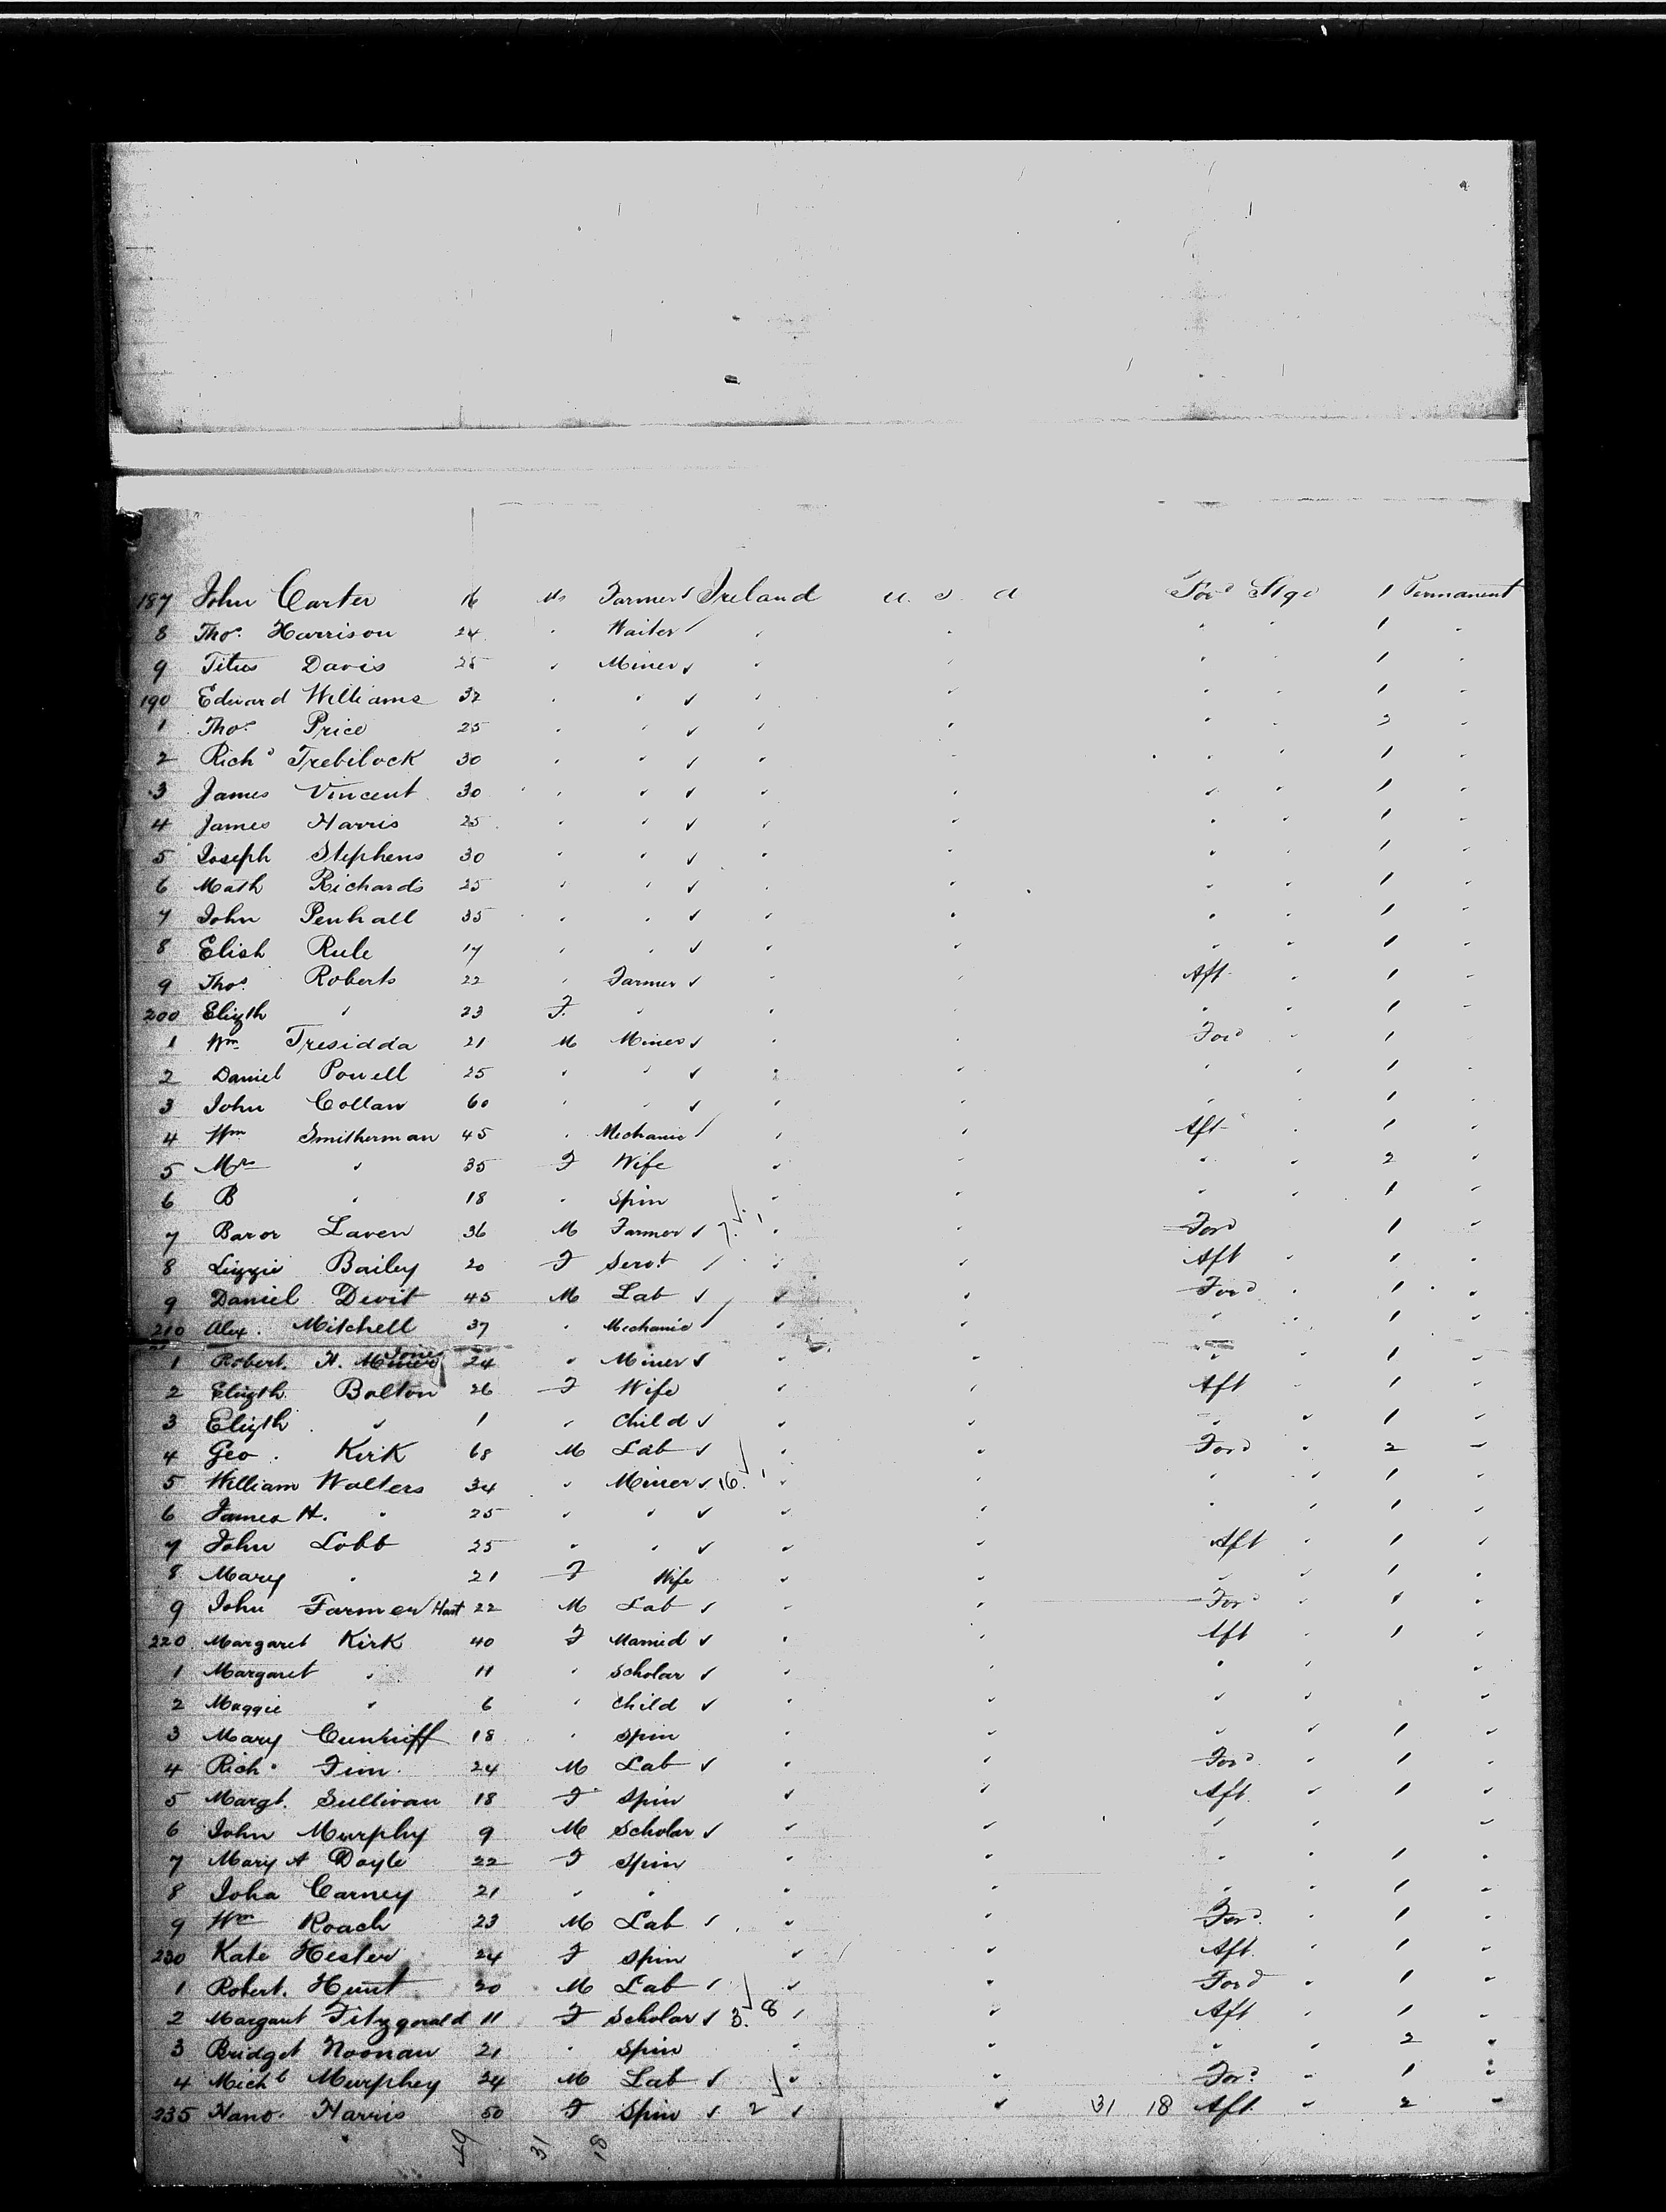 187 John Carter 16 M Farmer Ireland U. S. A Ford Stge 1 Permanent
8 Thos. Harrison 24 " Waiter " " " " 1 "
9 Titus Davis 25 " Miner " " " " 1 "
190 Edward Williams 32 " " " " " " 1 "
1 Thos. Price 25 " " " " " " 2 "
2 Richd Trebilock 30 " " " " " " 1 "
3 James Vincent 30 " " " " " " 1 "
4 James Harris 25 " " " " " " 1 "
5 Joseph Stephens 30 " " " " " " 1 "
6 Math Richards 25 " " " " " " 1 "
7 John Penhall 35 " " " " " " 1 "
8 Elish Rule 17 " " " " " " 1 "
9 Thos. Roberts 22 " Farmer " " Aft " 1 "
200 Elizth " 23 F. " " " " " 1 "
1 Wm Tresidda 21 M Miner " " Ford " 1 "
2 Daniel Powell 25 " " " " " " 1 "
3 John Collan 60 " " " " " " 1 "
4 Wm Smitherman 45 " Mechanic " " Aft " 1 "
5 Mrs " 35 F Wife " " " " 2 "
6 B " 18 " Spin " " " " 1 "
7 Baror Laven 36 M Farmer 7. 1 " " Ford 1 "
8 Lizzie Bailey 20 F Servt " " Aft " 1 "
9 Daniel Devit 45 M Lab " " Ford " 1 "
210 Alex. Mitchell 37 " Mechanic " " " " 1 "
1 Robert. H. Miner Jones 24 " Miner " " " 1 "
2 Elizth Bolton 26 F Wife " " Aft " 1 "
3 Elizth " 1 " Child " " " " 1 "
4 Geo. Kirk 68 M Lab " " Ford " 2 "
5 William Walters 34 " Miner 16. 1 " " " " 1 "
6 James H. " 25 " " " " " " 1 "
7 John Lobb 25 " " " " Aft " 1 "
8 Mary " 21 F Wife " " " " 1 "
9 John Farmer Hart 22 M Lab " " Ford " 1 "
220 Margaret Kirk 40 F Married " " Aft " 1 "
1 Margaret " 11 " Scholar " " " " "
2 Maggie " 6 " Child " " " " "
3 Mary Cunniff 18 " Spin " " " " 1 "
4 Rich. Finn 24 M Lab " " Ford " 1 "
5 Margt. Sullivan 18 F Spin " " Aft. " 1 "
6 John Murphy 9 M Scholar " " " " "
7 Mary A Doyle 22 F Spin " " " " 1 "
8 Joha Carney 21 " " " " " " 1 "
9 Wm Roach 23 M Lab " " Ford. " 1 "
230 Kate Hester 24 F Spin " " Aft. " 1 "
1 Robert. Hunt 20 M Lab " " Ford " 1 "
2 Margaret Fitzgerald 11 F Scholar 3. 8 " " Aft " 1 "
3 Bridget Noonan 21 " Spin " " " " 2 "
4 Michl Murphey 24 M Lab " " Ford " 1 "
235 Hano. Harris 50 F Spin 2 " " 31 18 Aft. " 2 "
49 31 18